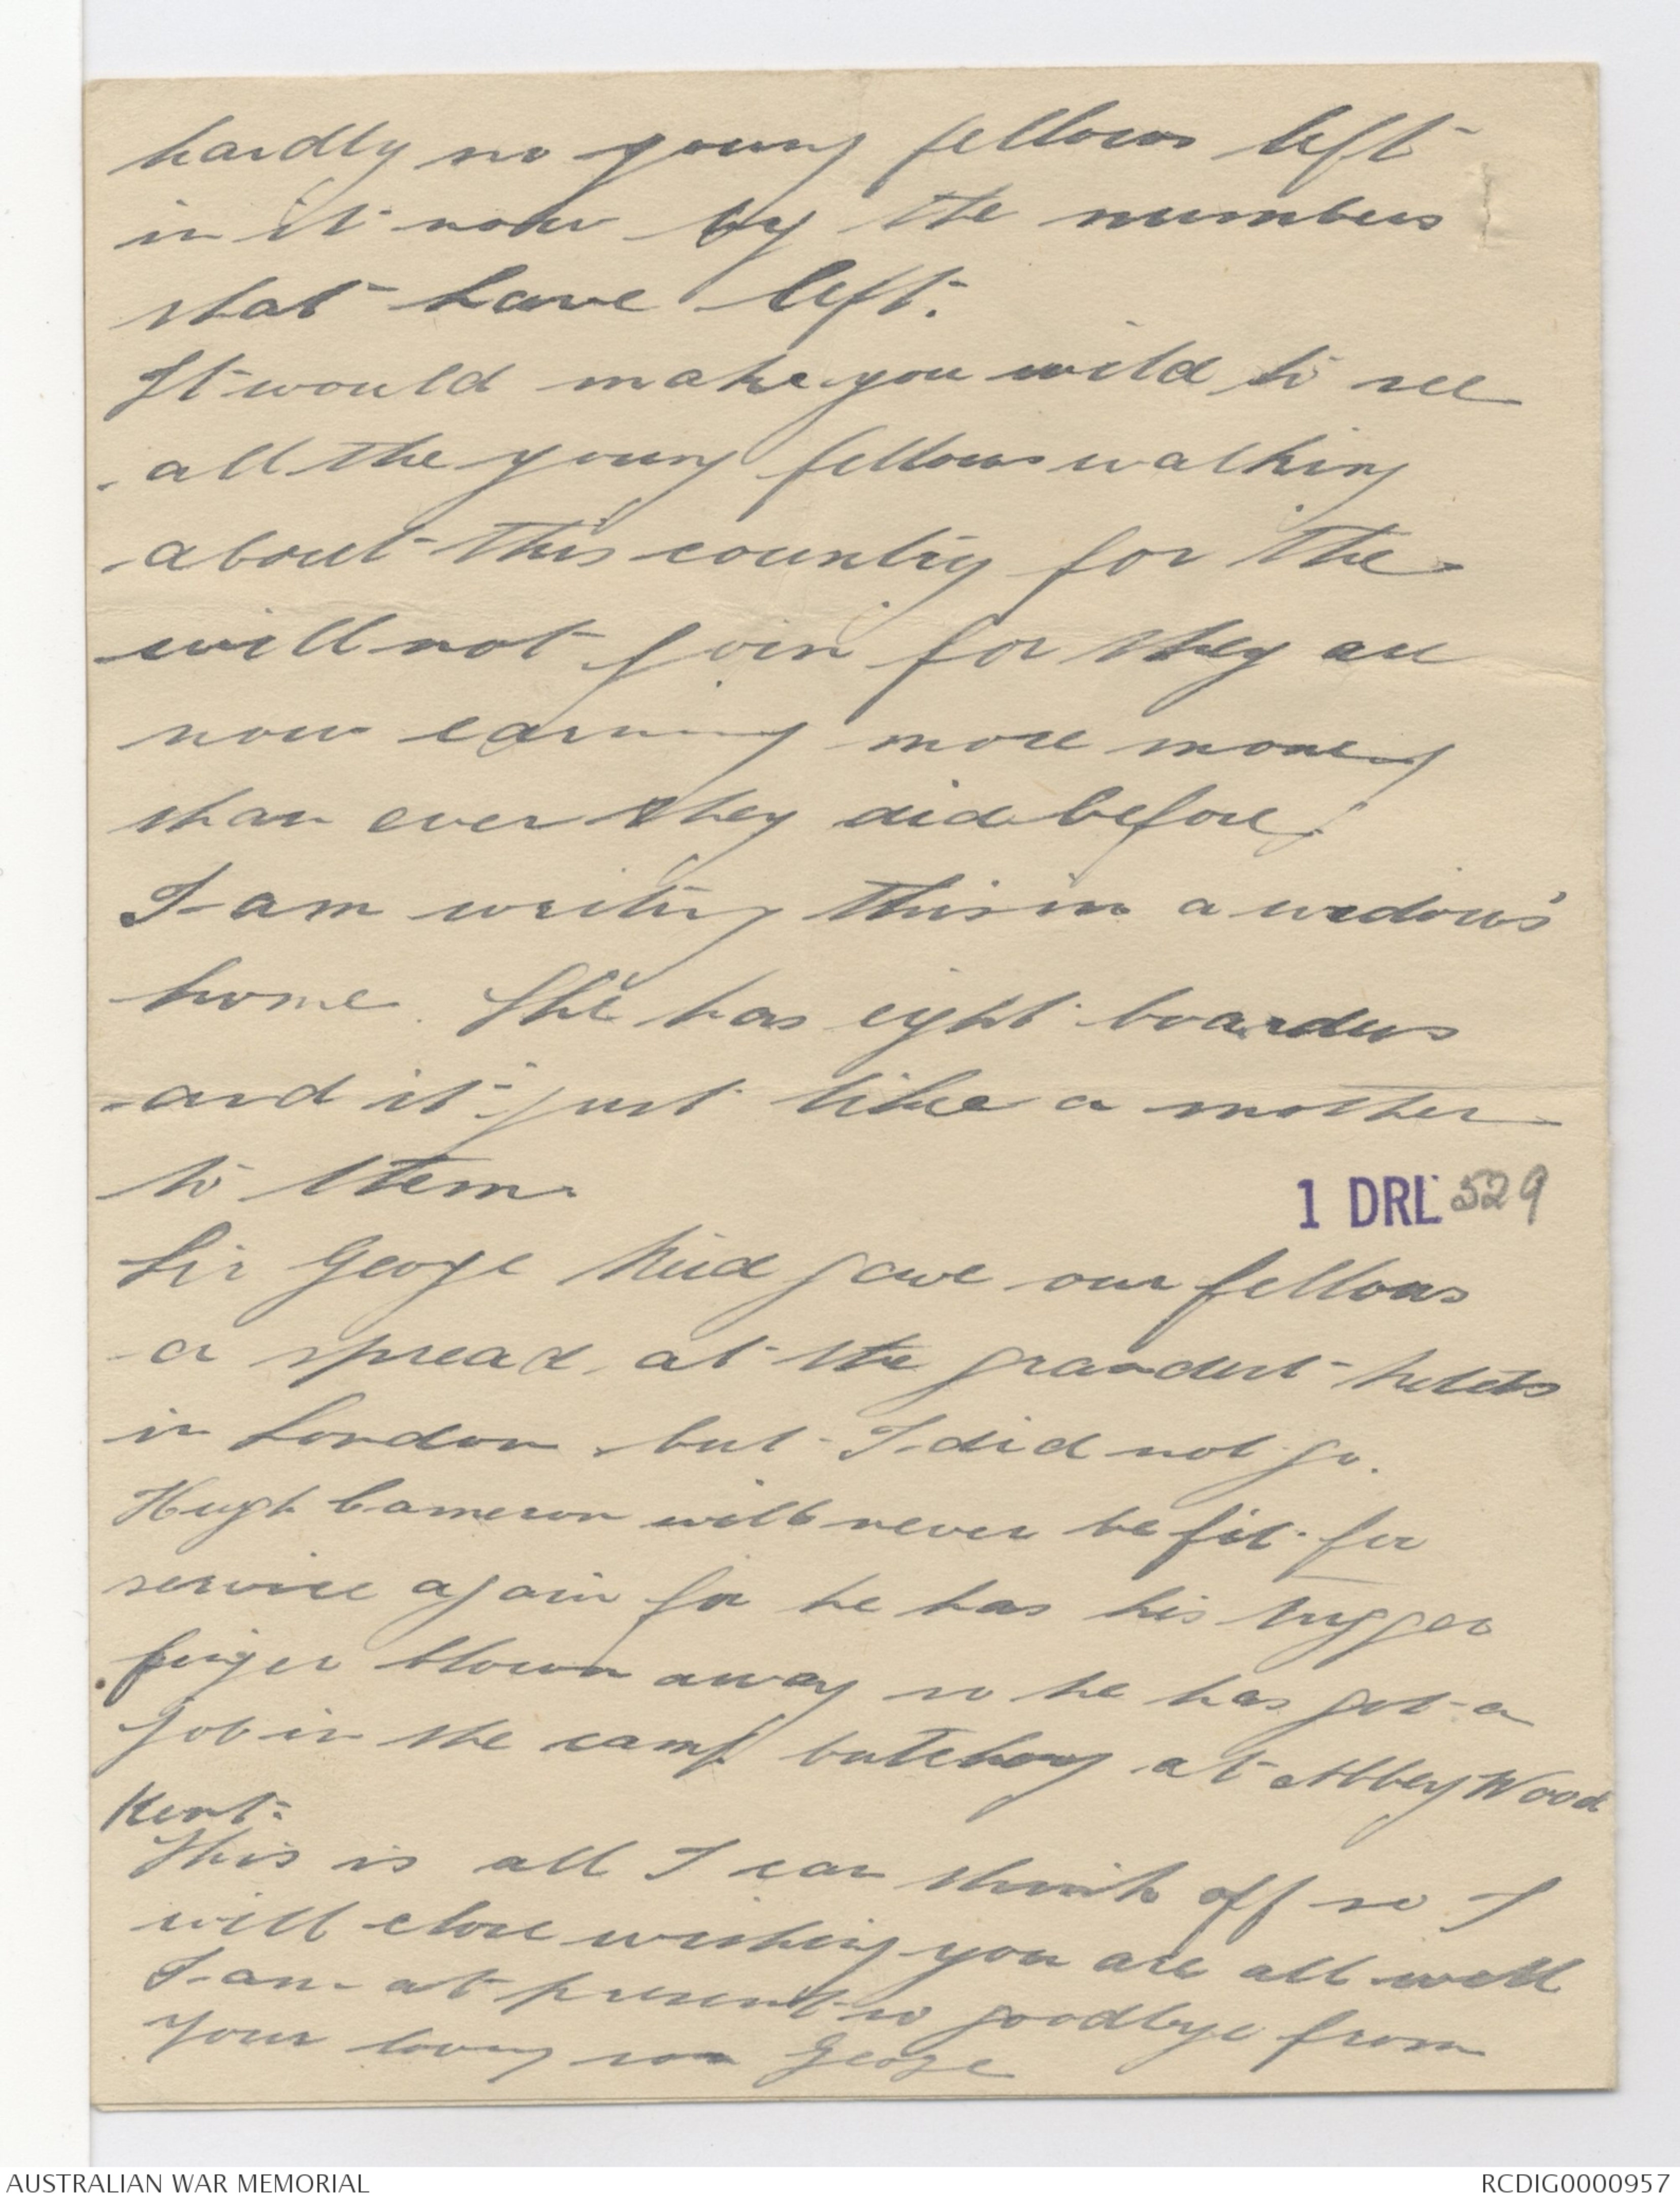 hardly no young fellows left
in it now by the numbers
that have left.
It would make you wild to see
all the young fellows walking
about this country for the
will not join for they are
now earning more money
than ever they did before.
I am writing this in a widows'
home. She has eight boarders
and it just like a mother
to them.
1 DRL 529
Sir George Reid gave our fellows
a spread at the grandest hotels
in London but I did not go.
Hugh Cameron will never be fit for
service again for he has his trigger
finger blown away so he has got a
job in the camp butchery at Abbey Wood
Kent.
This is all I can think off so I
will close wishing you are all well
I am at present so goodbye from
Your loving son George
AUSTRALIAN WAR MEMORIAL
RCDIG0000957